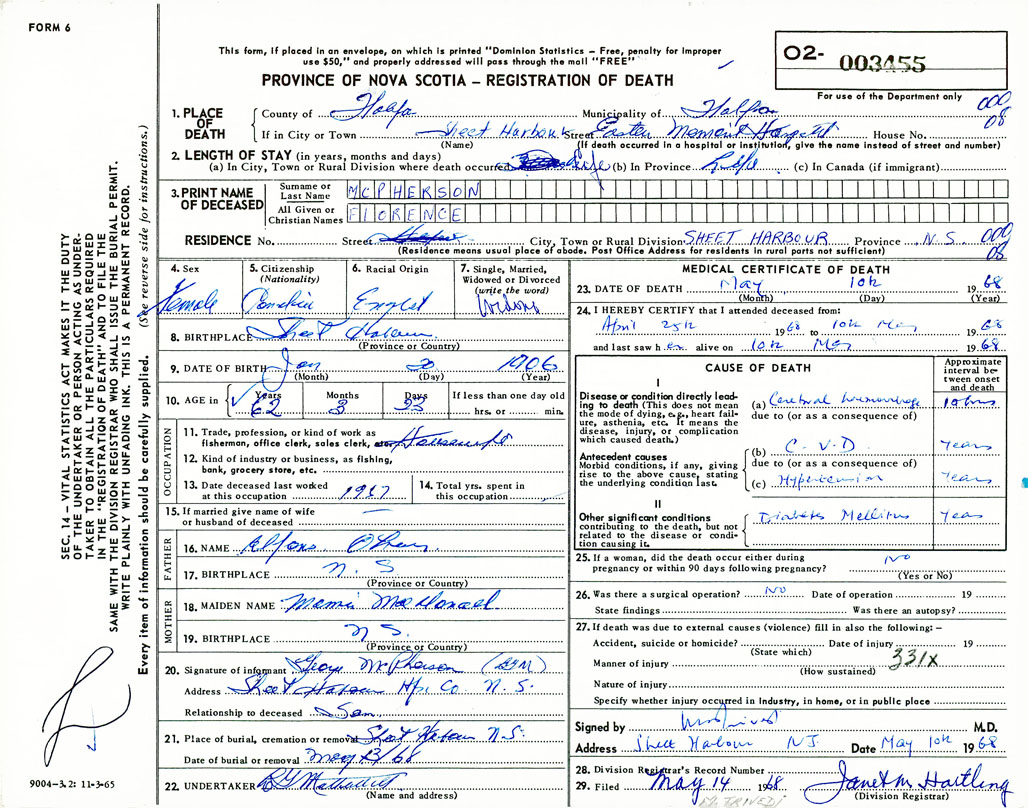 FORM 6
This form, if placed in an envelope, on which is printed "Dominion Statistics – Free, penalty for improper
use $50," and properly addressed will pass through the mail "FREE"
PROVINCE OF NOVA SCOTIA – REGISTRATION OF DEATH
02- 003455
For use of the Department only
000
08
1. PLACE OF DEATH
County of Halfx Municipality of Halfax
If in City or Town Sheet Harbour Street Eastern House No.
(Name) (If death occurred in a hospital or institution, give the name instead of street and number)
2. LENGTH OF STAY (in years, months and days)
(a) In City, Town or Rural Division where death occurred Life (b) In Province Life (c) In Canada (if immigrant)
3. PRINT NAME OF DECEASED
Surname or Last Name MCPHERSON
All Given or Christian Names FLORENCE
RESIDENCE No. Street City, Town or Rural Division SHEET HARBOUR Province N.S. 000
08
(Residence means usual place of abode. Post Office Address for residents in rural parts not sufficient)
4. Sex Female
5. Citizenship (Nationality)
6. Racial Origin
7. Single, Married, Widowed or Divorced (write the word)
8. BIRTHPLACE Sheet Harbour
(Province or Country)
9. DATE OF BIRTH Jan 20 1906
(Month) (Day) (Year)
10. AGE in Years 62 Months 3 Days If less than one day old hrs. or min.
OCCUPATION
11. Trade, profession, or kind of work as fisherman, office clerk, sales clerk, etc. Housewife
12. Kind of industry or business, as fishing, bank, grocery store, etc.
13. Date deceased last worked at this occupation 1967
14. Total yrs. spent in this occupation
15. If married give name of wife or husband of deceased
FATHER
16. NAME
17. BIRTHPLACE N.S.
(Province or Country)
MOTHER
18. MAIDEN NAME
19. BIRTHPLACE N.S.
(Province or Country)
20. Signature of informant George McPherson
Address Sheet Harbour Hfx. Co. N.S.
Relationship to deceased Son
21. Place of burial, cremation or removal Sheet Harbour N.S.
Date of burial or removal May 13/68
22. UNDERTAKER
(Name and address)
MEDICAL CERTIFICATE OF DEATH
23. DATE OF DEATH May 10th 1968
(Month) (Day) (Year)
24. I HEREBY CERTIFY that I attended deceased from:
April 25th 1968 to 10th May 1968
and last saw her alive on 10th May 1968
CAUSE OF DEATH
Approximate interval between onset and death
I
Disease or condition directly leading to death (This does not mean the mode of dying, e.g., heart failure, asthenia, etc. It means the disease, injury, or complication which caused death.)
(a) Cerebral Hemorrhage 10 hrs
due to (or as a consequence of)
Antecedent causes
Morbid conditions, if any, giving rise to the above cause, stating the underlying condition last.
(b) C.V.D. Years
due to (or as a consequence of)
(c) Hypertension Years
II
Other significant conditions contributing to the death, but not related to the disease or condition causing it.
Diabetes Mellitus Years
25. If a woman, did the death occur either during pregnancy or within 90 days following pregnancy? No
(Yes or No)
26. Was there a surgical operation? No Date of operation 19
State findings Was there an autopsy?
27. If death was due to external causes (violence) fill in also the following: –
Accident, suicide or homicide? Date of injury 19
(State which)
Manner of injury 331X
(How sustained)
Nature of injury
Specify whether injury occurred in Industry, in home, or in public place
Signed by M.D.
Address Sheet Harbour NS Date May 10th 1968
28. Division Registrar's Record Number
29. Filed May 14 1968 Janet M. Hartling
(Division Registrar)
SEC. 14 – VITAL STATISTICS ACT MAKES IT THE DUTY
OF THE UNDERTAKER OR PERSON ACTING AS UNDER-
TAKER TO OBTAIN ALL THE PARTICULARS REQUIRED
IN THE "REGISTRATION OF DEATH" AND TO FILE THE
SAME WITH THE DIVISION REGISTRAR WHO SHALL ISSUE THE BURIAL PERMIT.
WRITE PLAINLY WITH UNFADING INK. THIS IS A PERMANENT RECORD.
Every item of information should be carefully supplied. (See reverse side for instructions.)
9004-3.2: 11-3-65